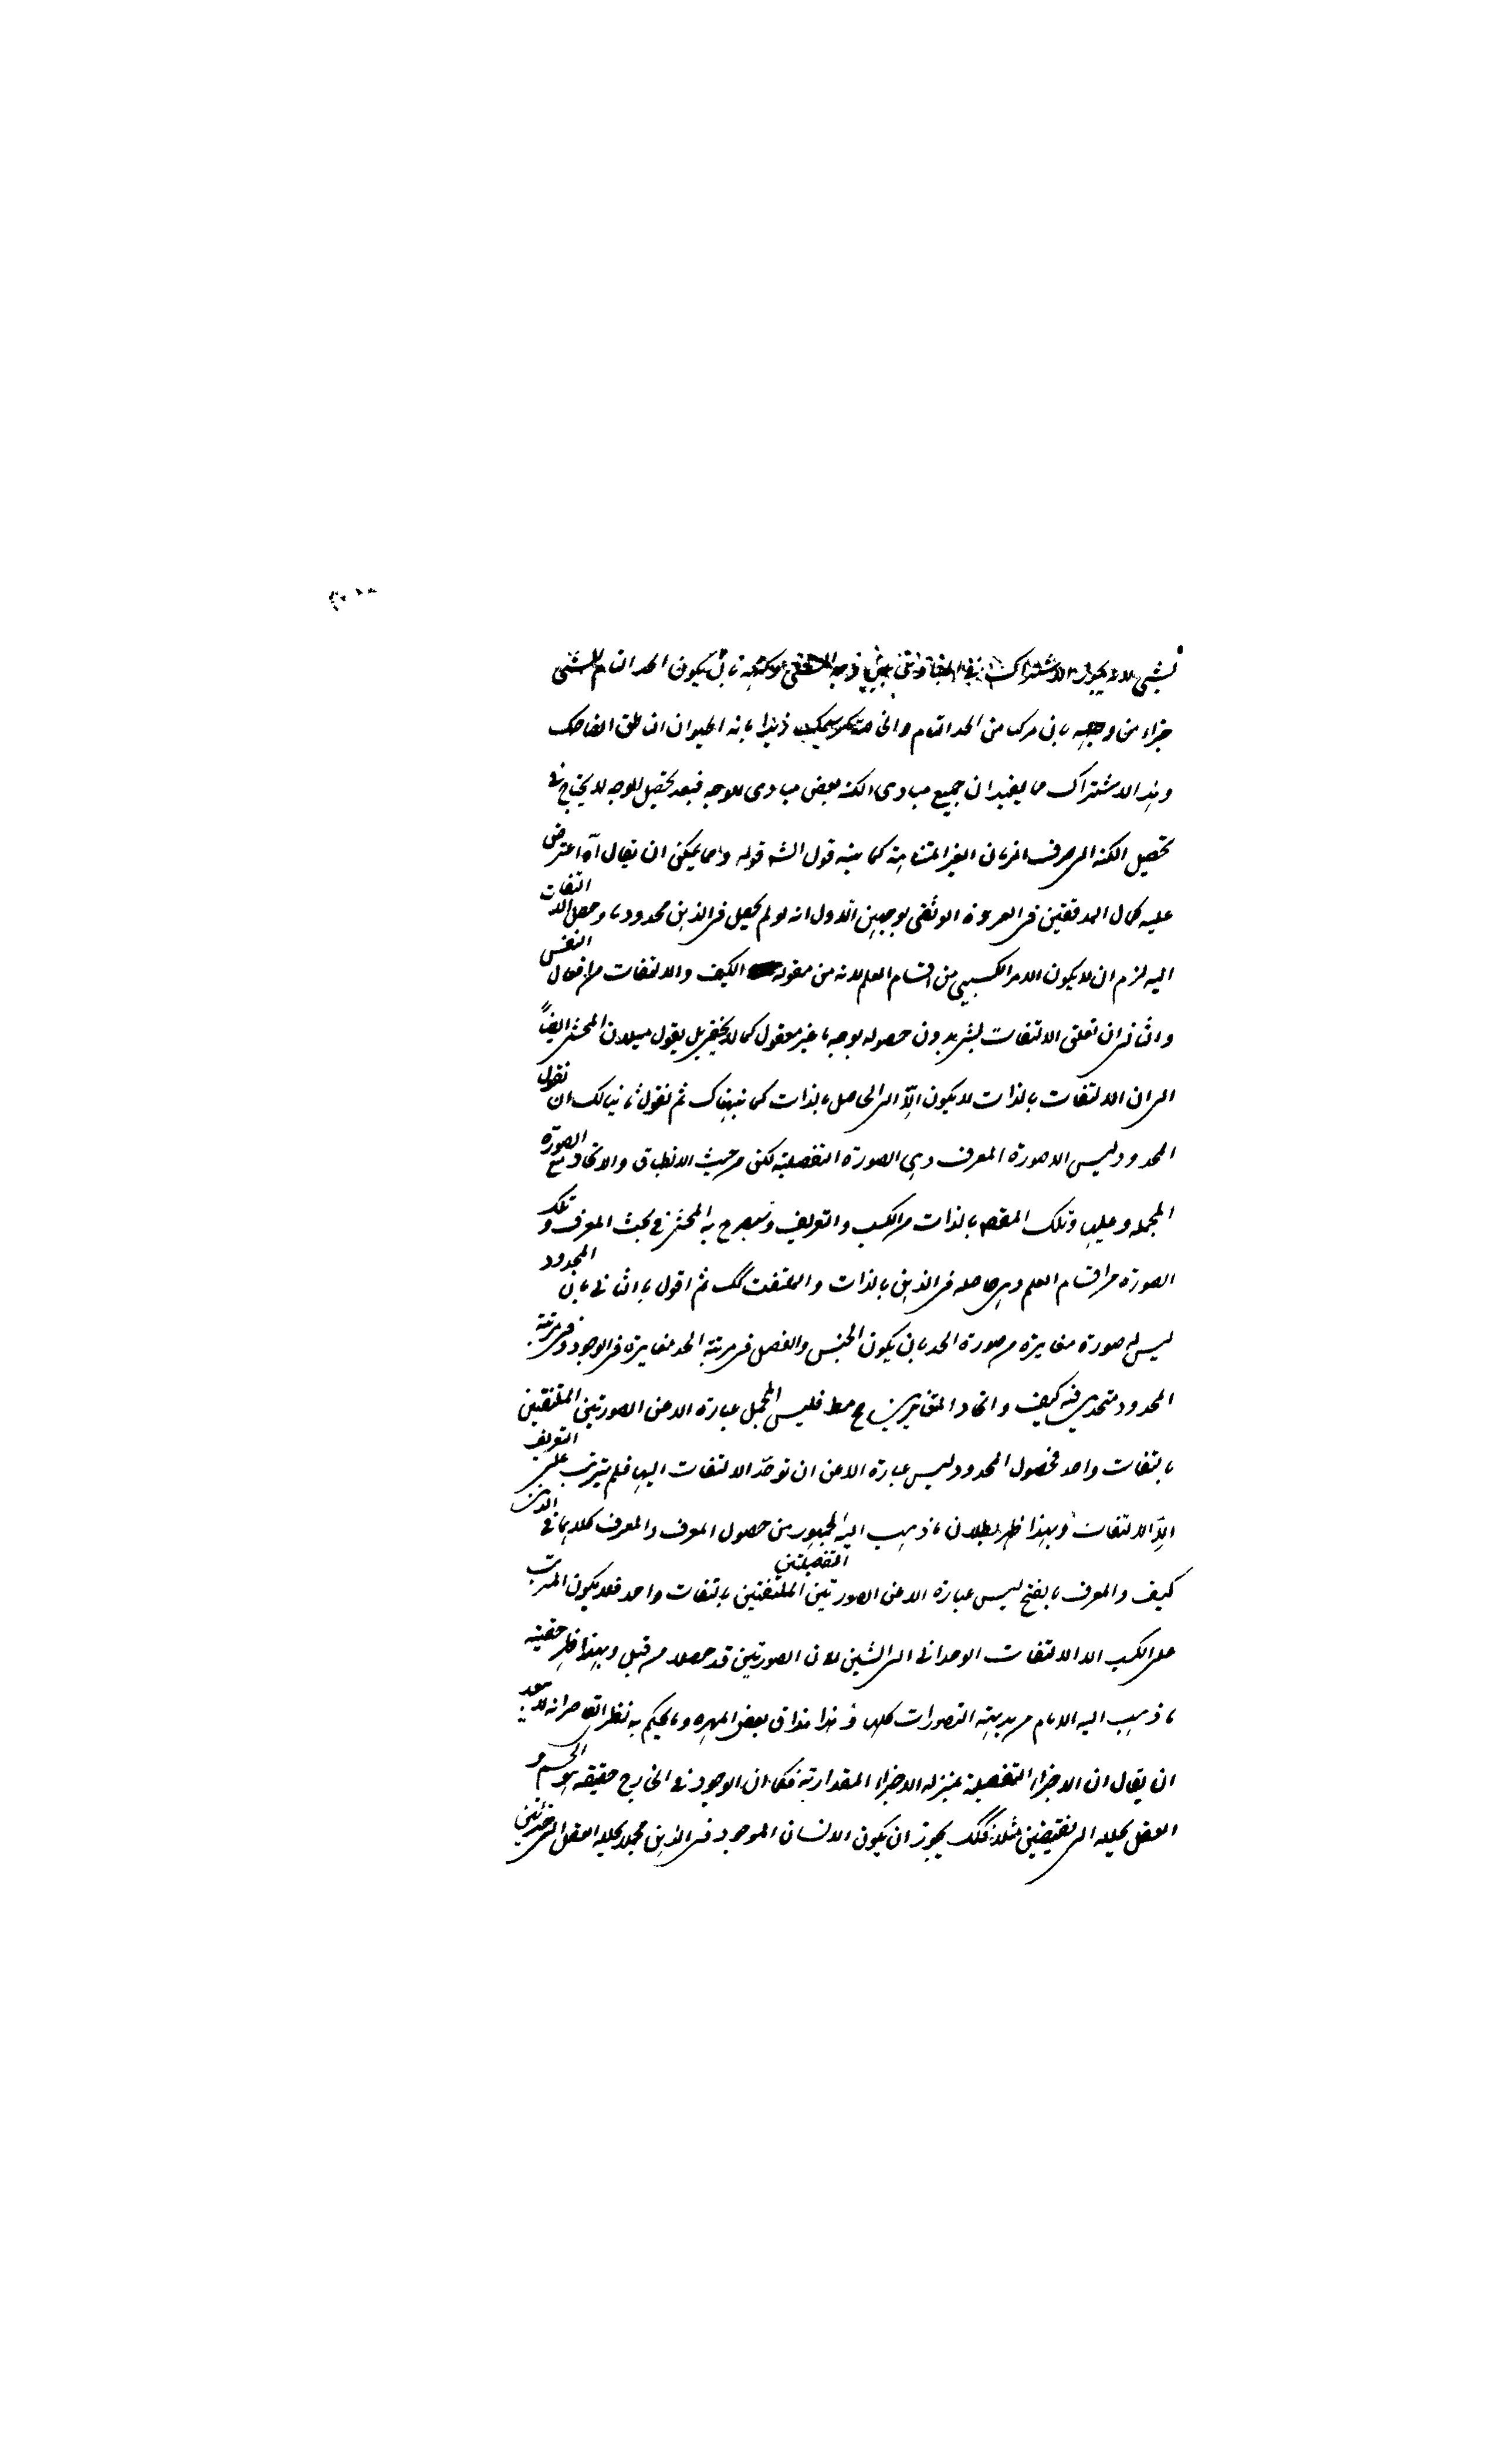 جزاء من وجهه بان مركب من الحد التام والخاصة ذيدا بانه الحيوان الناطق الضاحك
وهذا الاشتراك مما يفيد ان جميع مبادى الكنه بعض مبادى للوجه فبعد تحصيل الوجه لا يحتاج فى
تحصيل الكنه الى صرف الزمان الغير المتناهية كما ينبه قول الشه قوله وما يمكن ان يقال آه اعترض
عليه كمال المدققين فى العروة الوثقى بوجهين الاول انه لو لم يحصل فى الذهن محدود ما وحصل الالتفات
اليه لزم ان لا يكون الامر الكسبي من اقسام العلم لانه من مقولة الكيف والالتفات من افعال النفس
والثانى ان تعلق الالتفات بشئ بدون حصوله بوجه ما غير معقول كما لا يخفى بل يقول ميلان المحشى ايضاً
الى ان الالتفات بالذات لا يكون الّا الى الحاصل بالذات كما نبهناك ثم نقول ثانيا لك ان نقول
المحدود ليس الا صورة المعرف وهى الصورة التفصيلية لكن من حيث الانطباق والاتحاد مع الصورة
المجملة وعليها وتلك المقصم بالذات من الكسب والتعريف وسيصرح به المحشى فى بحث المعرف وتلك
الصورة من اقسام العلم وهى حاصله فى الذهن بالذات والملتفت كك ثم اقول بالثانى بان المحدود
ليس له صورة مغايرة من صورة الحد بان يكون الجنس والفصل فى مرتبة الحد مغايرة فى الوجود وفى مرتبة
المحدود متحدين فيه كيف واتحاد المتغايرين مح مط فليس المجمل عبارة الا عن الصورتين الملتفتين
بالتفات واحد فحصول المحدود ليس عبارة الا عن ان توحّد الالتفات اليها فلم يترتب على التعريف
الّا الالتفات وبهذا ظهر بطلان ما ذهب اليه الجمهور من حصول المعرف والمعرف كلاهما فى الذهن
كيف والمعرف بالفتح ليس عبارة الا عن الصورتين التفصيلتين الملتفتين بالتفات واحد فلا يكون المترتب
على الكسب الا الالتفات الوحدانى الى الشيئين لان الصورتين قد حصلا من قبل وبهذا ظهر حقيته
ما ذهب اليه الامام من بديهية التصورات كلها و هذا مذاق بعض المهره وما يحكم به نظر القاصر انه لا يبعد
ان يقال ان الاجزاء التفصيلية بمنزلة الاجزاء المقدارية فكما ان الوجود فى الخارج حقيقة هو الجسم و
العقل يحلله الى نقيضين مثلا كك يجوز ان يكون الانسان الموجود فى الذهن مجملا يحلله العقل الى جزئين